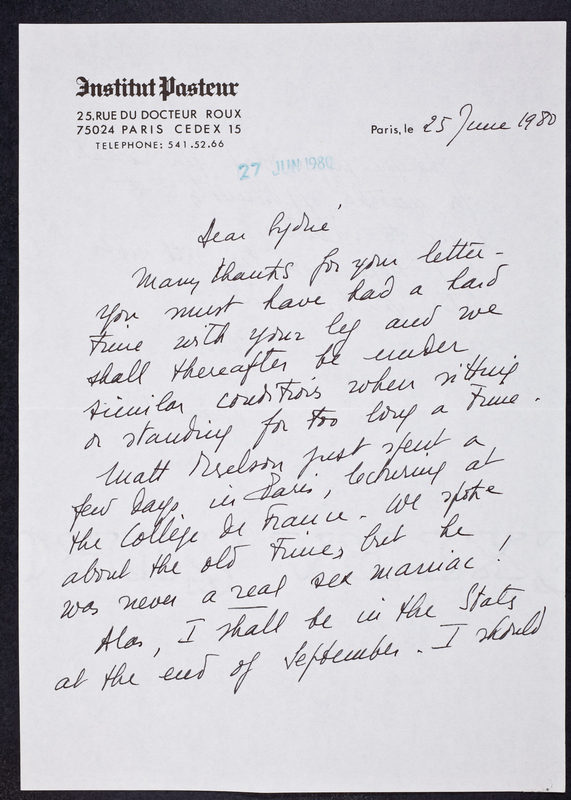 Institut Pasteur
25, RUE DU DOCTEUR ROUX
75024 PARIS CEDEX 15
TELEPHONE: 541.52.66
Paris, le 25 June 1980
27 JUN 1980
Dear Sydne
Many thanks for your letter -
You must have had a hard
time with your leg and we
shall thereafter be under
similar conditions when sitting
or standing for too long a time.
Matt Meselson just spent a
few days in Paris, lecturing at
the Collège de France. We spoke
about the old times but he
was never a real sex maniac!
Alas, I shall be in the States
at the end of September. I should